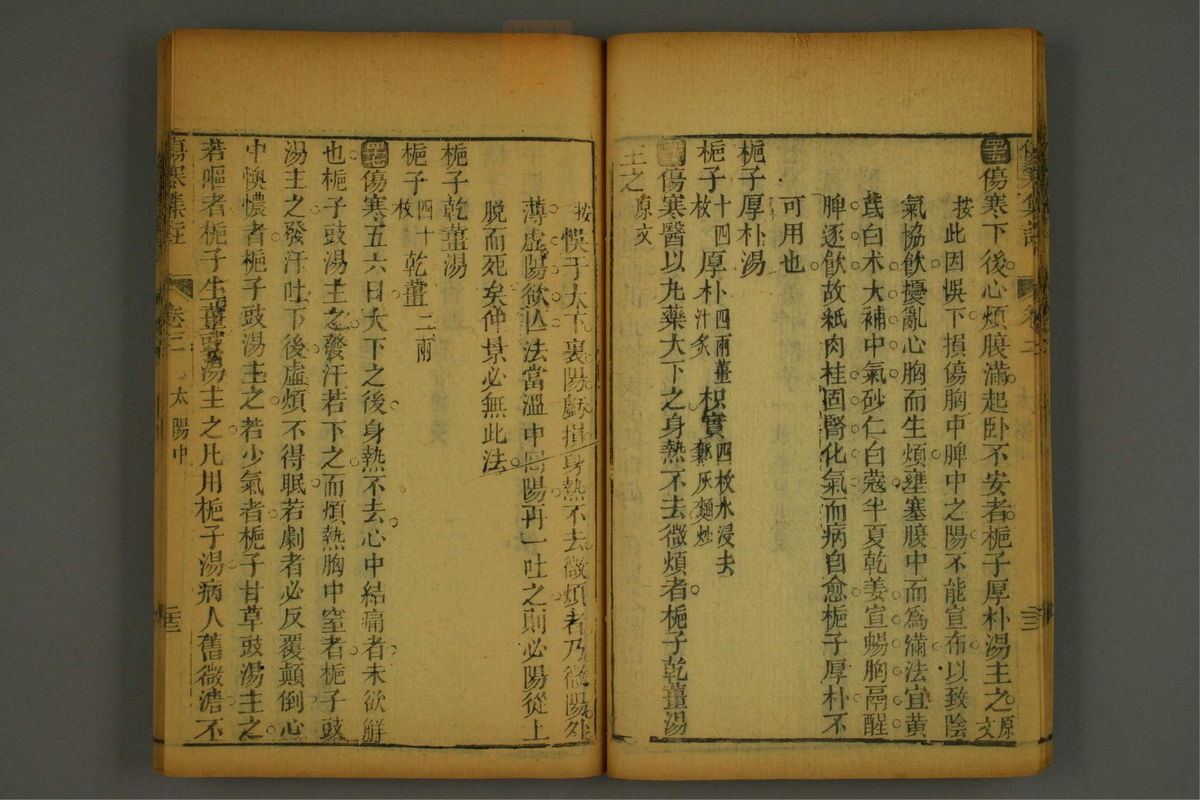 傷寒下後心煩腹滿起臥不安者梔子厚朴湯主之原文
按此因悞下損傷胸中脾中之陽不能宣布以致陰
氣協飲擾亂心胸而生煩壅塞腹中而為滿法宜黃
茋白朮大補中氣砂仁白蔻半夏乾姜宣暢胸膈醒
脾逐飲故紙肉桂固腎化氣而病自愈梔子厚朴不
可用也
梔子厚朴湯
梔子十四枚 厚朴四兩薑汁炙 枳實四枚水浸去穰灰麵炒
傷寒醫以九藥大下之身熱不去微煩者梔子乾薑湯
主之原文
按悞于大下裏陽虧損身熱不去微煩者乃微陽外
薄虛陽欲亾法當溫中回陽再一吐之則必陽從上
脫而死矣仲景必無此法
梔子乾薑湯
梔子四十枚 乾薑二兩
傷寒五六日大下之後身熱不去心中結痛者未欲解
也梔子豉湯主之發汗若下之而煩熱胸中窒者梔子豉
湯主之發汗吐下後虛煩不得眠若劇者必反覆顛倒心
中懊憹者梔子豉湯主之若少氣者梔子甘草豉湯主之
若嘔者梔子生薑豉湯主之凡用梔子湯病人舊微溏不
傷寒集註 卷二 太陽中